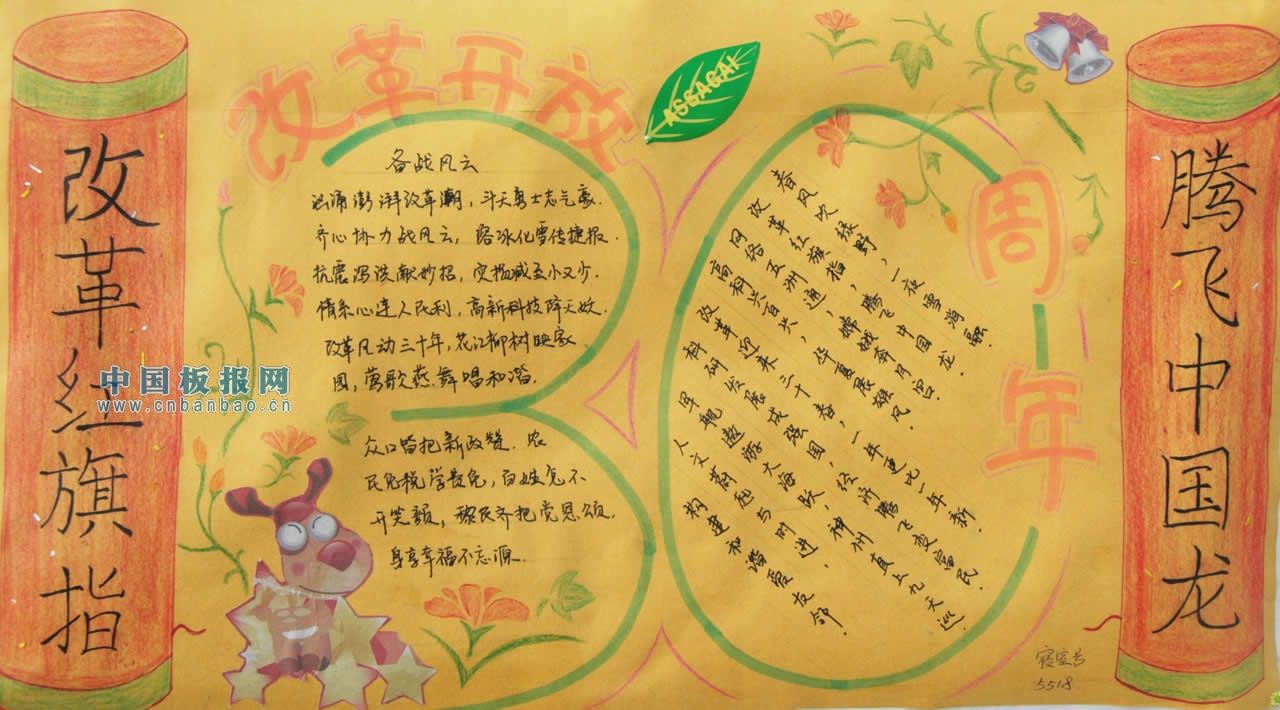 改革红旗指
改革开放
ASGAGAI
周年
腾飞中国龙
备战风云
汹涌澎湃改革潮，斗天勇士志气豪．
齐心协力战风云，踏冰化雪传捷报．
抗震泻洪献妙招，灾损减至小又少．
情系心连人民利，高新科技降天妖．
改革风动三十年，花江柳树映家
园，莺歌燕舞唱和谐．
众口皆把新政赞．农
民免税学费免，百姓怎不
开笑颜，黎民齐把党恩颂，
身享幸福不忘源．
春风吹绿野，一夜雪消融．
改革红旗指，腾飞中国龙．
网络五洲通，嫦娥奔月宫．
高科共百兴，华夏展雄风．
改革迎来三十春，一年更比一年新．
科研发展成强国，经济腾飞变富民．
舰遨游大海跃，神州直上九天巡．
人文蔚起与时进，
构建和谐爱友邻．
寝室号
5518
中国板报网
www.cnbanbao.cn